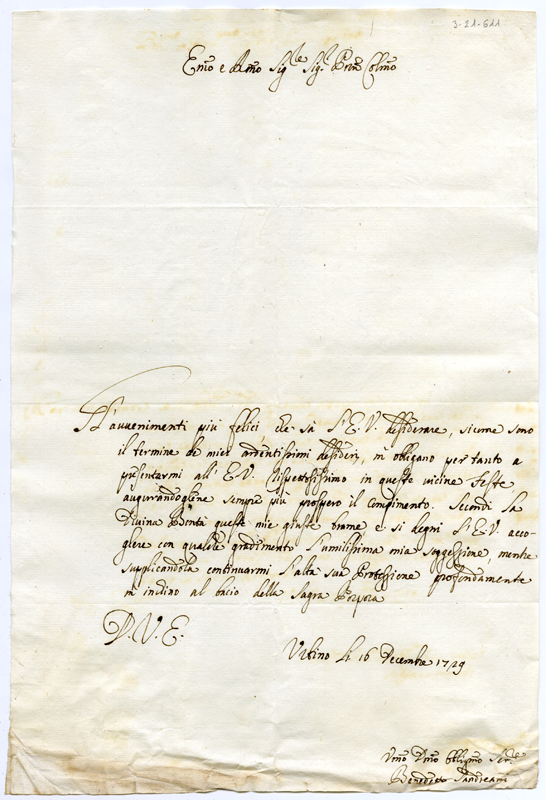 3-21-611
Emo e Rmo Sig.re Sig.r Prōn Colmo
Gl'avvenimenti più felici, che sà l'E.V. desiderare, sicome sono
il termine de miei ardentissimi desiderj, m'obligano per tanto a
presentarmi all'E.V. Rispettosissimo in queste vicine Feste
augurrandoglene sempre più prospero il compimento. Secondi la
Divina Bontà queste mie giuste brame e si degni l'E.V. acco-
gliere con qualche gradimento l'umilissima mia soggessione, mentre
supplicandola continuarmi l'alta sua Protessione profondamente
m'inclino al bacio della Sagra Porpora
D.V.E.
Urbino li 16 Decembre 1729
Vmo Dmo Obligmo Ser.re
Benedetto